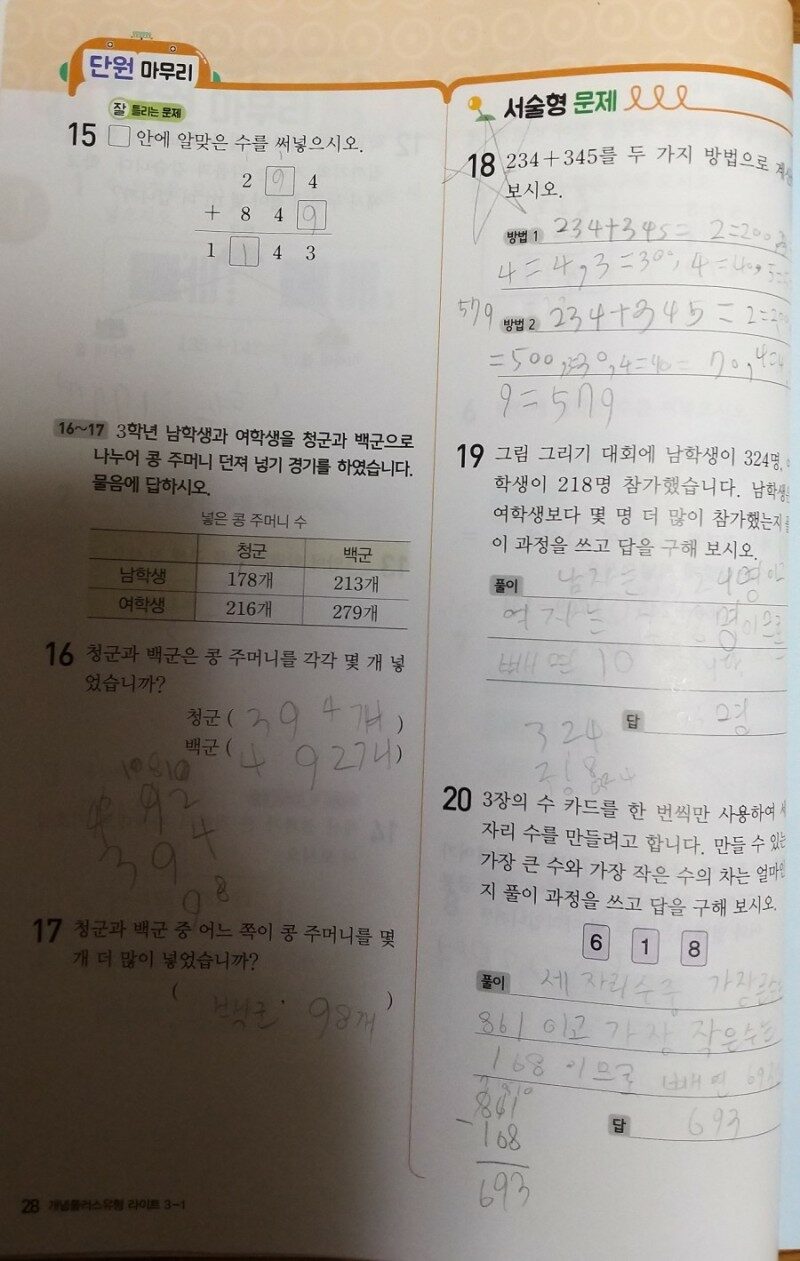 단원 마무리
잘 틀리는 문제
15 □ 안에 알맞은 수를 써넣으시오.
2 9 4
+ 8 4 9
1 1 4 3
16~17 3학년 남학생과 여학생을 청군과 백군으로
나누어 콩 주머니 던져 넣기 경기를 하였습니다.
물음에 답하시오.
넣은 콩 주머니 수
청군 백군
남학생 178개 213개
여학생 216개 279개
16 청군과 백군은 콩 주머니를 각각 몇 개 넣
었습니까?
청군 ( 394개 )
백군 ( 492개 )
492
394
98
17 청군과 백군 중 어느 쪽이 콩 주머니를 몇
개 더 많이 넣었습니까?
( 백군 98개 )
28 개념플러스유형 라이트 3-1
서술형 문제
18 234+345를 두 가지 방법으로
보시오.
방법 1 234+345= 2=200,
4=4, 3=300, 4=40,
579 방법 2 234+345=
=500, 4=40= 70,
9=579
19 그림 그리기 대회에 남학생이 324명,
학생이 218명 참가했습니다. 남학생은
여학생보다 몇 명 더 많이 참가했는지
이 과정을 쓰고 답을 구해 보시오.
풀이 남자는
여자는
빼면
답 명
324
20 3장의 수 카드를 한 번씩만 사용하여 세
자리 수를 만들려고 합니다. 만들 수 있는
가장 큰 수와 가장 작은 수의 차는 얼마인
지 풀이 과정을 쓰고 답을 구해 보시오.
6 1 8
풀이 세자리수중 가장큰수는
861이고 가장 작은수는
168이므로 빼면 693
답 693
861
- 168
693